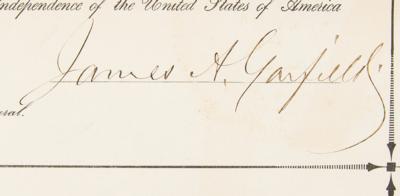 Independence of the United States of America
James A. Garfield
eral.